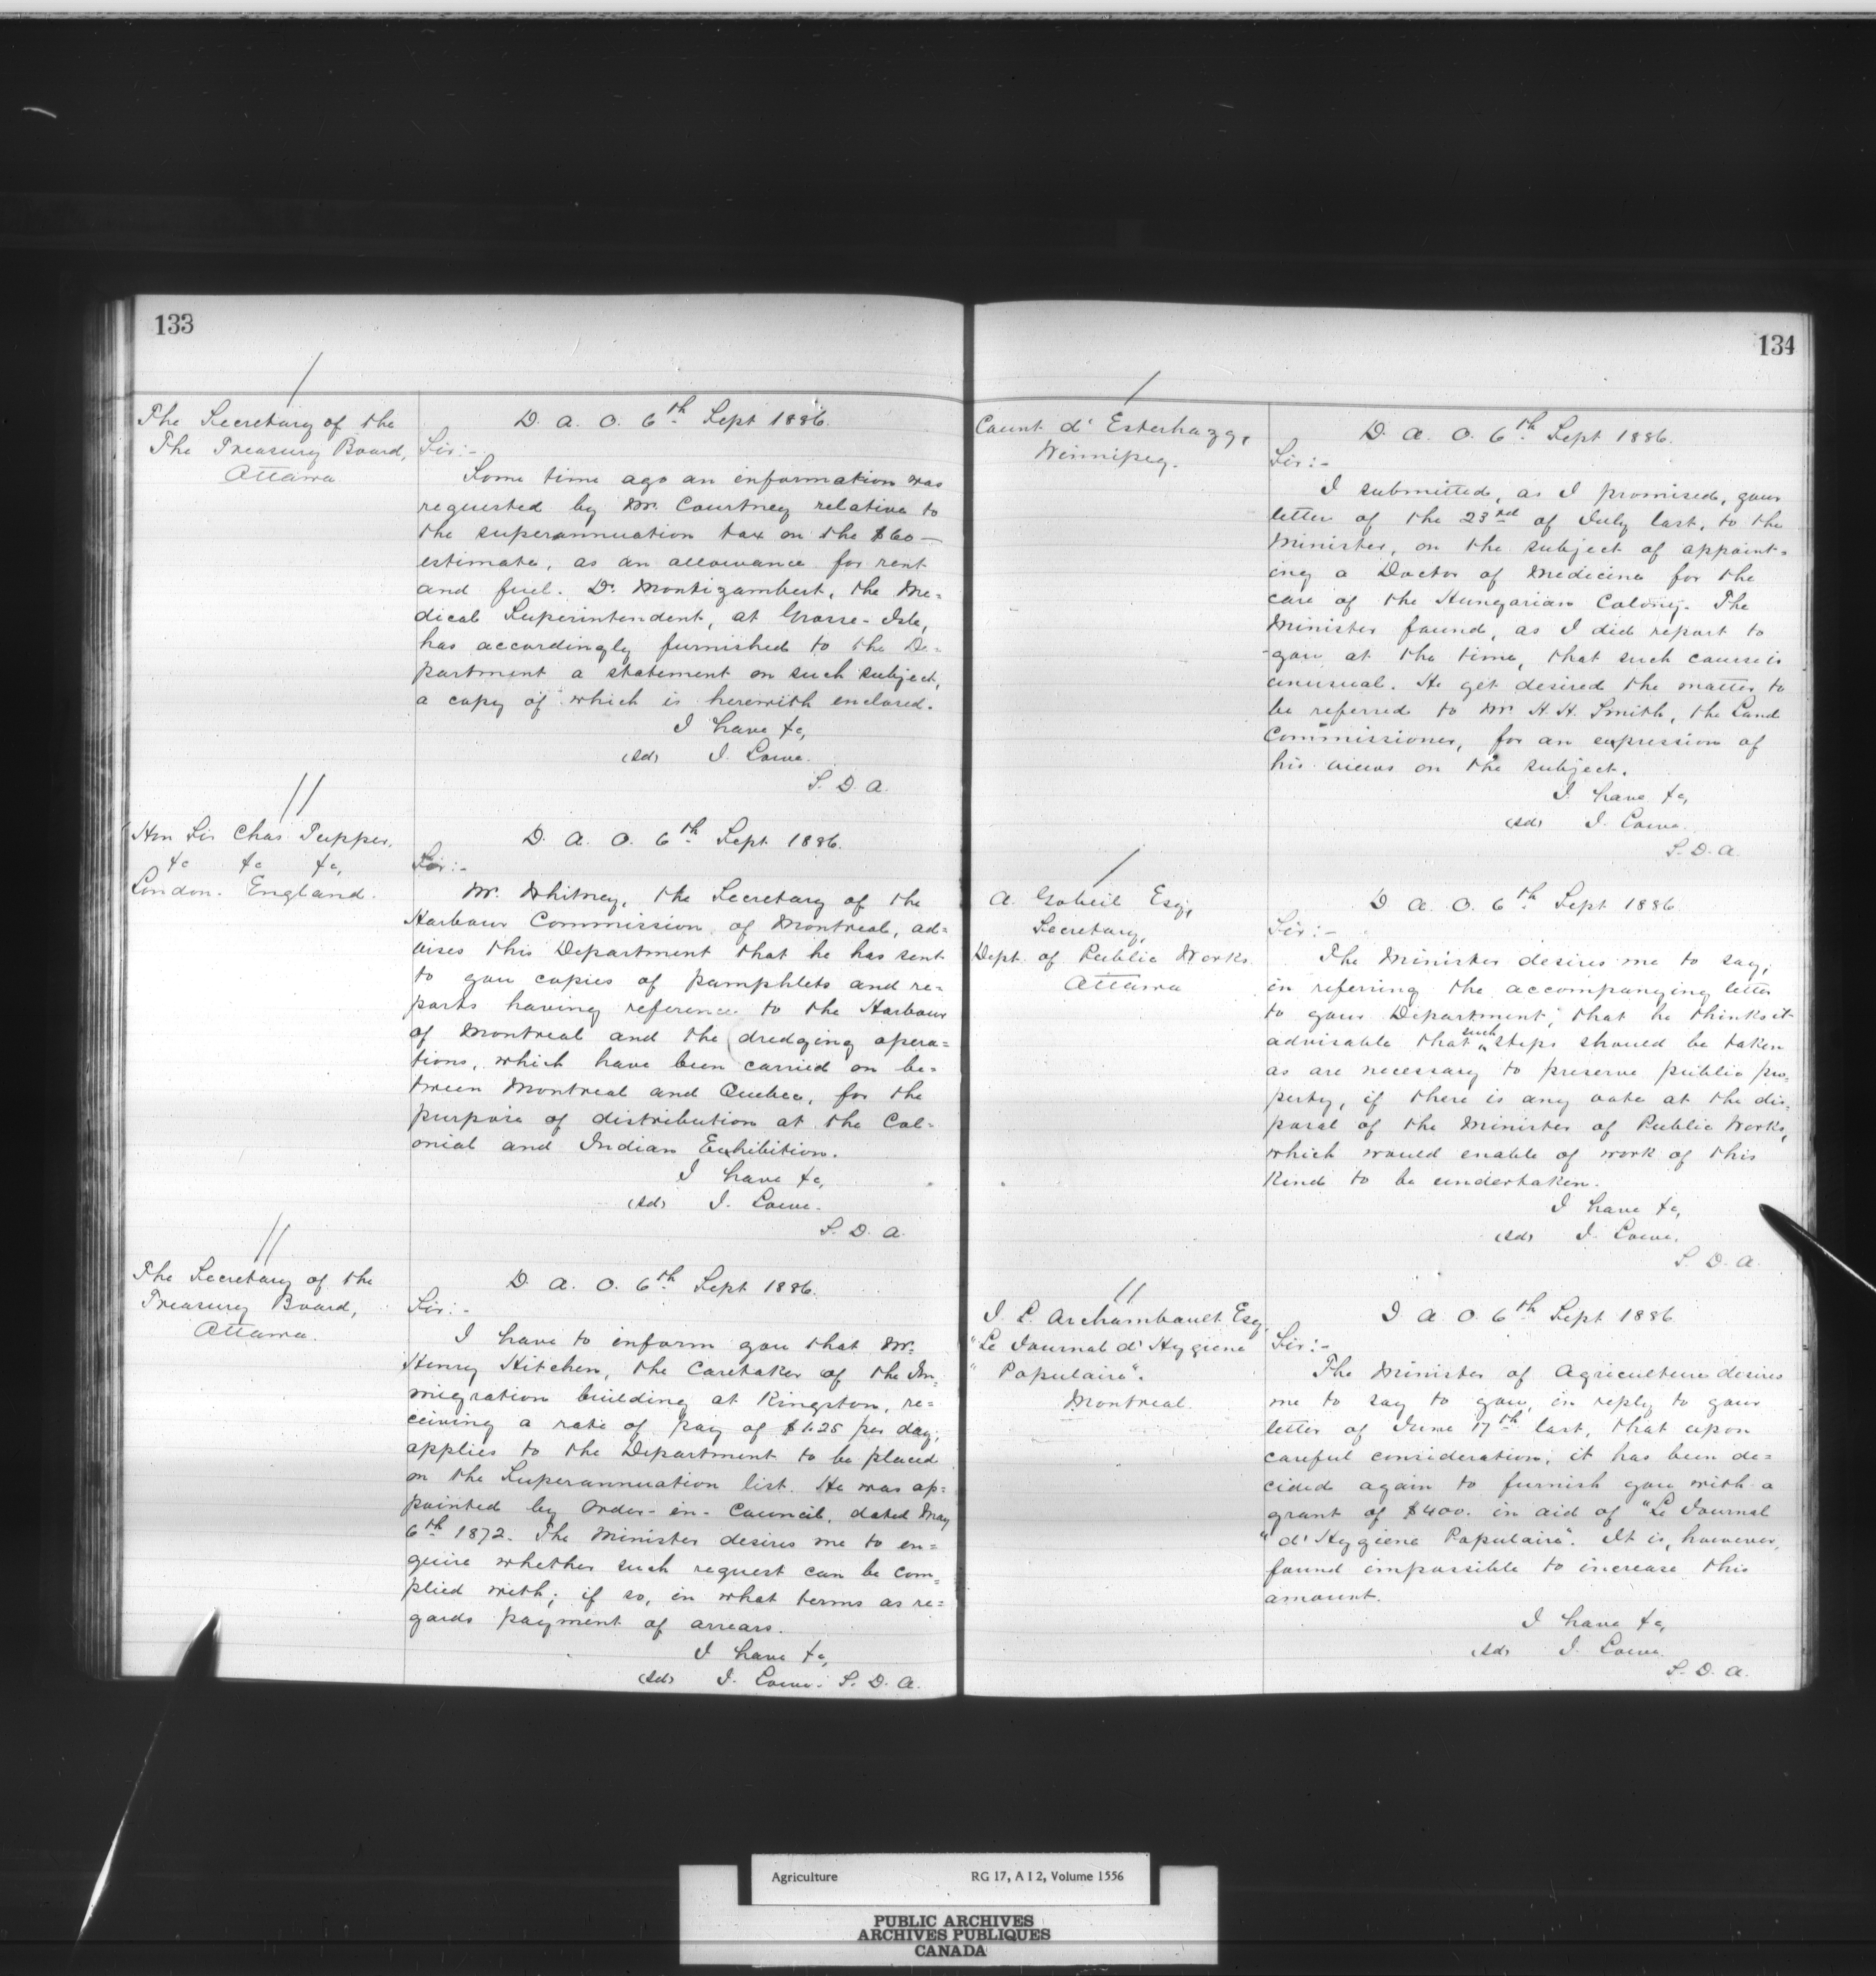 133
The Secretary of the
The Treasury Board,
Ottawa
D. A. O. 6th Sept 1886.
Sir:-
Some time ago an information was
requested by Mr. Courtney relative to
the superannuation tax on the $60—
estimate, as an allowance for rent
and fuel. Dr. Montizambert, the Me=
dical Superintendent, at Grosse-Isle,
has accordingly furnished to the De=
partment a statement on such subject,
a copy of which is herewith enclosed.
I have &c,
(sd) J. Lowe.
S. D. A.
Hon Sir Chas Tupper,
&c &c &c,
London. England.
D. A. O. 6th Sept. 1886.
Sir:-
Mr. Whitney, the Secretary of the
Harbour Commission of Montreal, ad=
vises this Department that he has sent
to you copies of pamphlets and re=
ports having reference to the Harbour
of Montreal and the dredging opera=
tions, which have been carried on be=
tween Montreal and Quebec, for the
purpose of distribution at the Col=
onial and Indian Exhibition.
I have &c,
(sd) J. Lowe.
S. D. A.
The Secretary of the
Treasury Board,
Ottawa.
D. A. O. 6th Sept 1886.
Sir:-
I have to inform you that Mr.
Henry Kitchen, the Caretaker of the Im=
migration building at Kingston, re=
ceiving a rate of pay of $1.25 per day,
applies to the Department to be placed
on the Superannuation list. He was ap=
pointed by Order-in-Council, dated May
6th 1872. The Minister desires me to en=
quire whether such request can be com=
plied with; if so, in what terms as re=
gards payment of arrears.
I have &c,
(sd) J. Lowe. S. D. A.
134
Count d' Esterhazy,
Winnipeg.
D. A. O. 6th Sept 1886.
Sir:-
I submitted, as I promised, your
letter of the 23rd of July last, to the
Minister, on the subject of appoint=
ing a Doctor of Medicine for the
care of the Hungarian Colony. The
Minister found, as I did report to
you at the time, that such course is
unusual. He yet desired the matter to
be referred to Mr H. H. Smith, the Land
Commissioner, for an expression of
his views on the subject.
I have &c,
(sd) J. Lowe.
S. D. A.
A. Gobeil Esq,
Secretary,
Dept. of Public Works.
Ottawa
D. A. O. 6th Sept 1886
Sir:-
The Minister desires me to say,
in referring the accompanying letter
to your Department, that he thinks it
advisable that such steps should be taken
as are necessary to preserve public pro=
perty, if there is any vote at the dis=
posal of the Minister of Public Works,
which would enable of work of this
kind to be undertaken.
I have &c,
(sd) J. Lowe.
S. D. A.
J. L. Archambault Esq,
"Le Journal d' Hygiene
" Populaire".
Montreal.
D. A. O. 6th Sept 1886
Sir:-
The Minister of Agriculture desires
me to say to you, in reply to your
letter of June 17th last, that upon
careful consideration, it has been de=
cided again to furnish you with a
grant of $400. in aid of "Le Journal
"d' Hygiene Populaire". It is, however,
found impossible to increase this
amount.
I have &c,
(sd) J. Lowe.
S. D. A.
Agriculture RG 17, A I 2, Volume 1556
PUBLIC ARCHIVES
ARCHIVES PUBLIQUES
CANADA